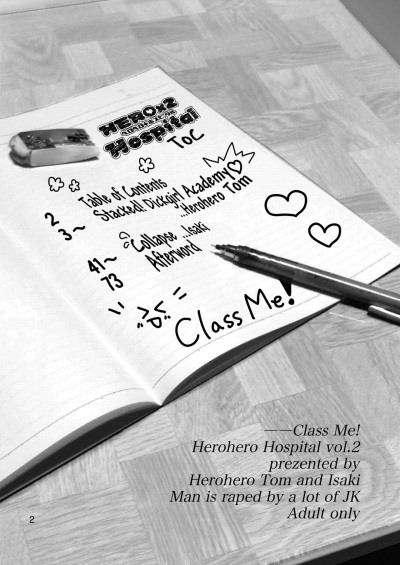 HERO×2
Hospital
ToC
2 Table of Contents
3~ Stacked! Dickgirl Academy
...Herohero Tom
41~ Collapse ...Isaki
73 Afterword
Class Me!
——Class Me!
Herohero Hospital vol.2
prezented by
Herohero Tom and Isaki
Man is raped by a lot of JK
Adult only
2